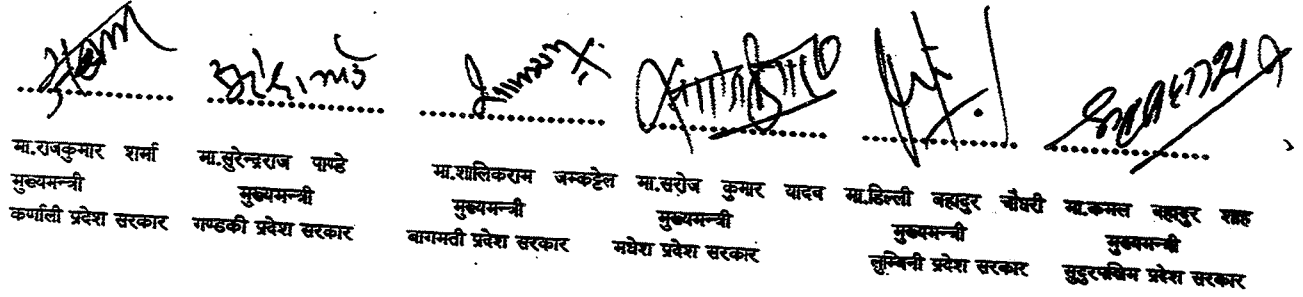 मा.राजकुमार शर्मा
मुख्यमन्त्री
कर्णाली प्रदेश सरकार
मा.सुरेन्द्रराज पाण्डे
मुख्यमन्त्री
गण्डकी प्रदेश सरकार
मा.शालिकराम जम्कट्टेल
मुख्यमन्त्री
बागमती प्रदेश सरकार
मा.सरोज कुमार यादव
मुख्यमन्त्री
मधेश प्रदेश सरकार
मा.डिल्ली बहादुर चौधरी
मुख्यमन्त्री
लुम्बिनी प्रदेश सरकार
मा.कमल बहादुर शाह
मुख्यमन्त्री
सुदुरपश्चिम प्रदेश सरकार